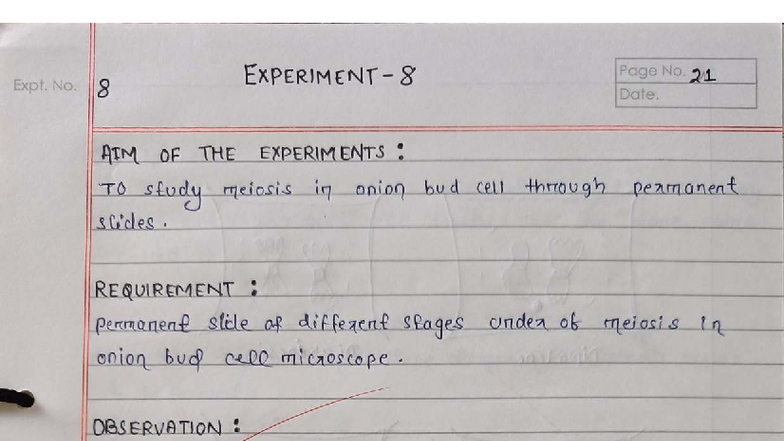 EXPERIMENT-8
Expt. No. 8
Page No. 21
Date.
AIM OF THE EXPERIMENTS :
To study meiosis in onion bud cell through permanent
slides.
REQUIREMENT :
Permanent slide of different stages under of meiosis in
onion bud cell microscope.
OBSERVATION :